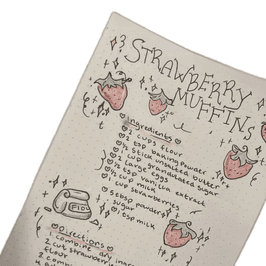 STRAWBERRY
MUFFINS
Ingredients
2 cups flour
2 tsp baking powder
1/2 stick unsalted butter
1 cup grandulated sugar
2 large eggs
1/2 tsp vanilla extract
cup milk
cup strawberries
5 tbsp powder
sugar
1 tbsp milk
Directions
1 combine dry
2 cut strawberries
flour